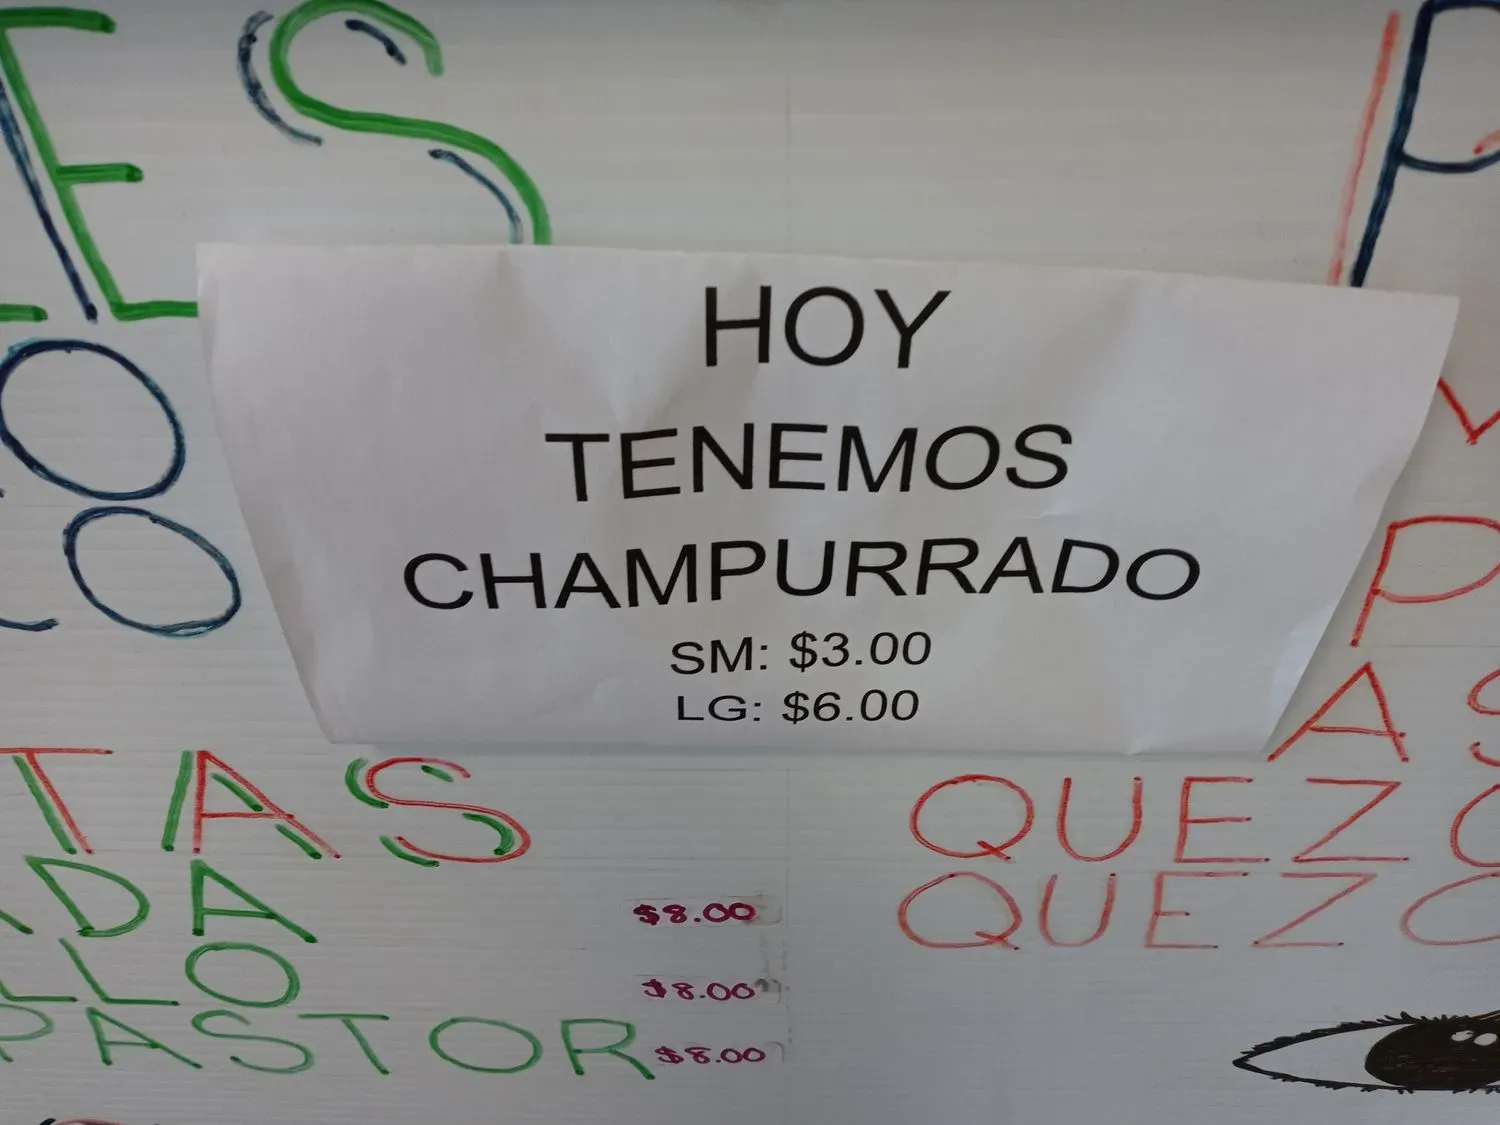 ES
P
HOY
TENEMOS
CHAMPURRADO
SM: $3.00
LG: $6.00
O
CO
P
AS
TAS
QUEZO
ADA $8.00
QUEZO
LLO $8.00
PASTOR $8.00